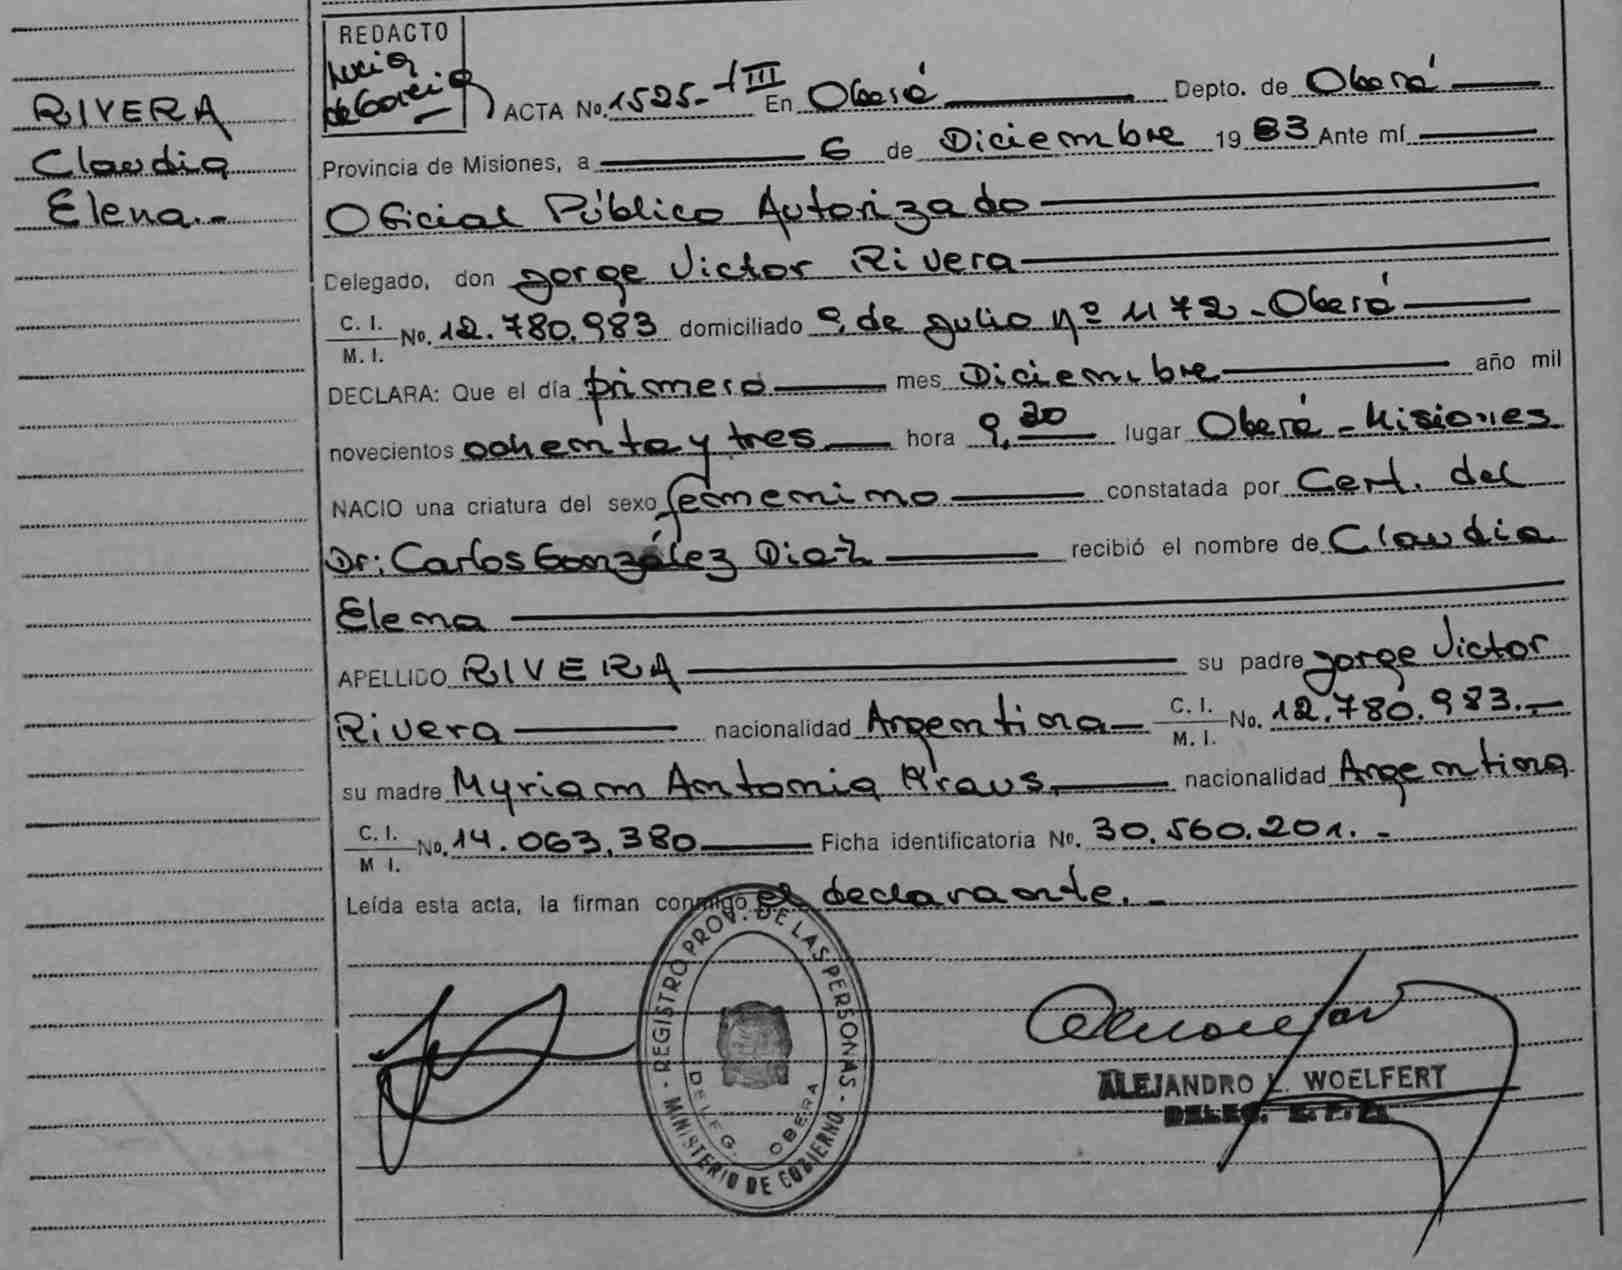 RIVERA
Claudia
Elena.-
REDACTO
Lucia
de Garcia
ACTA No. 1525-III En Oberá Depto. de Oberá
Provincia de Misiones, a 6 de Diciembre 1983 Ante mí
Oficial Público Autorizado
Delegado, don Jorge Victor Rivera
C. I. M. I. No. 12.780.983 domiciliado 9 de Julio nº 1172 - Oberá
DECLARA: Que el día primero mes Diciembre año mil
novecientos ochenta y tres hora 9,20 lugar Oberá - Misiones
NACIO una criatura del sexo femenino constatada por Cert. del
Dr: Carlos González Diaz recibió el nombre de Claudia
Elena
APELLIDO RIVERA su padre Jorge Victor
Rivera nacionalidad Argentina C. I. M. I. No. 12.780.983.-
su madre Myriam Antonia Kraus nacionalidad Argentina
C. I. M I. No. 14.063.380 Ficha identificatoria No. 30.560.201.-
Leída esta acta, la firman conmigo el declarante.-
REGISTRO PROV. DE LAS PERSONAS - MINISTERIO DE GOBIERNO -
DELEG. OBERA
ALEJANDRO L. WOELFERT